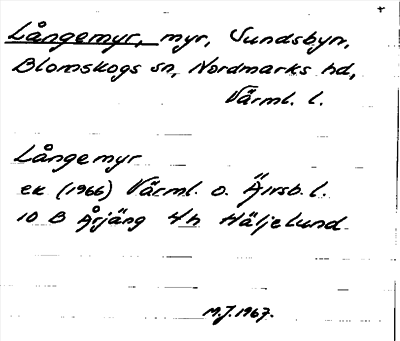 Långemyr, myr, Sundsbyn,
Blomskogs sn, Nordmarks hd,
Värml. l.
Långemyr
ek (1966) Värml. o. Älvsb. l.
10 B Årjäng 4h Häljelund
M.J. 1967.